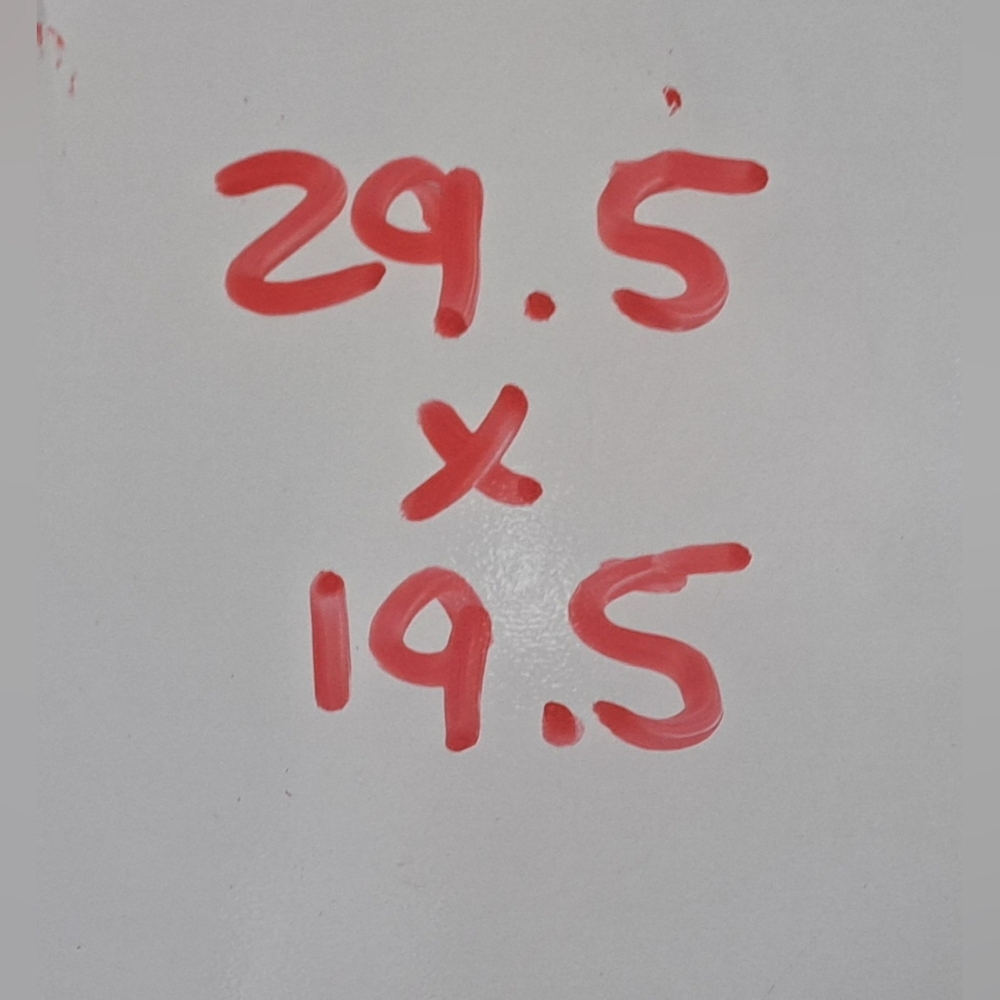 29.5
x
19.5